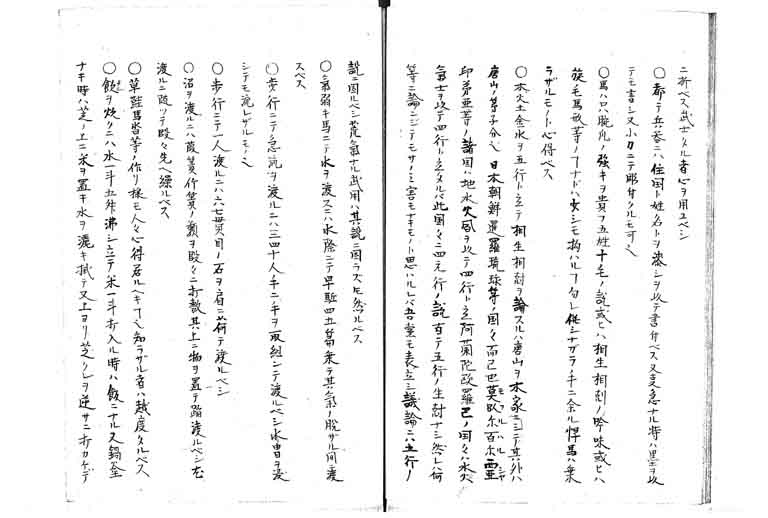 ニ折ベス武士タル者心ヲ用ユベシ
〇都テ兵器ニハ住国ト姓名トヲ漆シヲ以テ書付ベス又支急ナル時ハ墨ヲ以
テモ書シ又小刀ニテ彫付クルモ可也
〇馬ハ只腕肉ノ強キヲ貴フ五姓十毛ノ説或ヒハ相生相剋ノ吟味或ヒハ
旋毛馬形等ノヿナドハ少シモ拘ハルヿ勿レ 従シナガラ手ニ余ル悍馬ハ乗
ラザルモノト心得ベス
〇木火土金水ヲ五行ト立テ相生相尅ヲ論スルハ唐山ヲ本家ニシテ其外ハ
唐山ノ弟子分也 日本朝鮮暹羅琉球等ノ国々而已也莫臥尔百尓西亜
印弟亜等ノ諸国ハ地水火風ヲ以テ四行ト立阿蘭陀欧羅巴ノ国々ハ水火
氣土ヲ以テ四行ト立タルバ此国々ニ四元行ノ説有テ五行ノ生尅ナシ然レハ何
等ニ論ニシテモサノミ害モナキモノト思ハルレバ吾黨モ表立シ議論ニハ五行ノ
説ニ固ルベシ荒氣ナル武用ハ其説ニ固ラズ𪜈然ルベス
〇氣弱キ馬ニテ水ヲ渡スニハ水際ニテ早駈四五篇乗テ其氣ノ脱ザル間ニ渡
スベス
〇歩行ニテ急流ヲ渡ルニハ三四十人手ニ手ヲ取組シテ渡ルベシ水曽ヲ渡
シテモ流レザルモノ也
〇歩行ニテ一人渡ルニハ六七貫目ノ石ヲ肩ニ荷テ渡ルベシ
〇沼ヲ渡ルニハ葭簀竹簀ノ類ヲ段々ニ打敷其上ニ物ヲ置テ踏渡ルベシ尤
渡ルニ随ツテ段々先ヘ繰ルベス
〇草鞋馬沓等ノ作リ様モ人々心得居ルヘキヿ也知ラザル者ハ越度タルベス
〇飯ヲ炊クニハ水一斗五舛沸シ立テ米一斗打入ル時ハ飯ニナル又鍋釜
ナキ時ハ芝ノ上ニ米ヲ置キ水ヲ漉キ拭テ又上ヨリ芝クレヲ逆サニ打カケテ